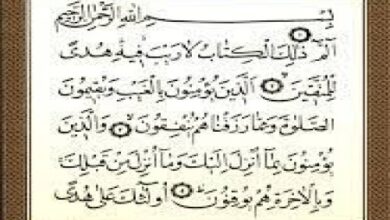 بِسْمِ اللهِ الرَّحْمٰنِ الرَّحِيْمِ
الٓمّٓ ۝ ذٰلِكَ الْكِتَابُ لَا رَيْبَ فِيْهِ هُدًى
لِلْمُتَّقِيْنَ ۝ الَّذِيْنَ يُؤْمِنُوْنَ بِالْغَيْبِ وَيُقِيْمُوْنَ
الصَّلٰوةَ وَمِمَّا رَزَقْنَاهُمْ يُنْفِقُوْنَ ۝ وَالَّذِيْنَ
يُؤْمِنُوْنَ بِمَا اُنْزِلَ اِلَيْكَ وَمَا اُنْزِلَ مِنْ قَبْلِكَ
وَبِالْاٰخِرَةِ هُمْ يُوْقِنُوْنَ ۝ اُولٰئِكَ عَلٰى هُدًى